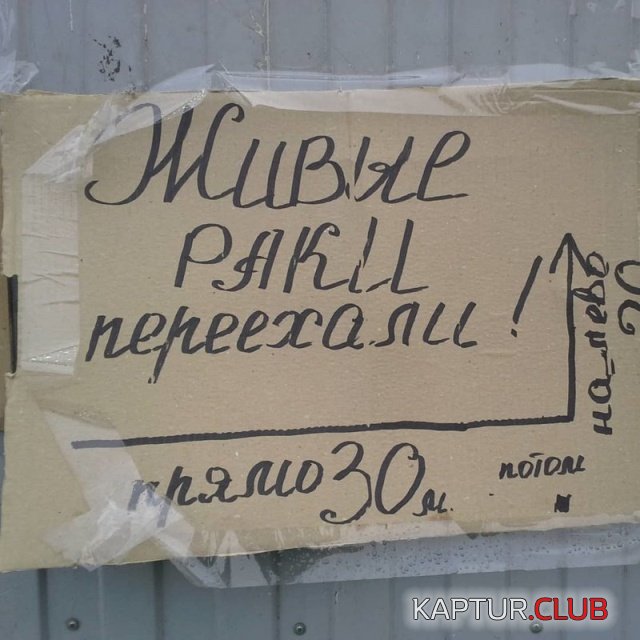 Живые
РАКИ
переехали!
прямо 30 м.
потом
на_лево
20
KAPTUR.CLUB